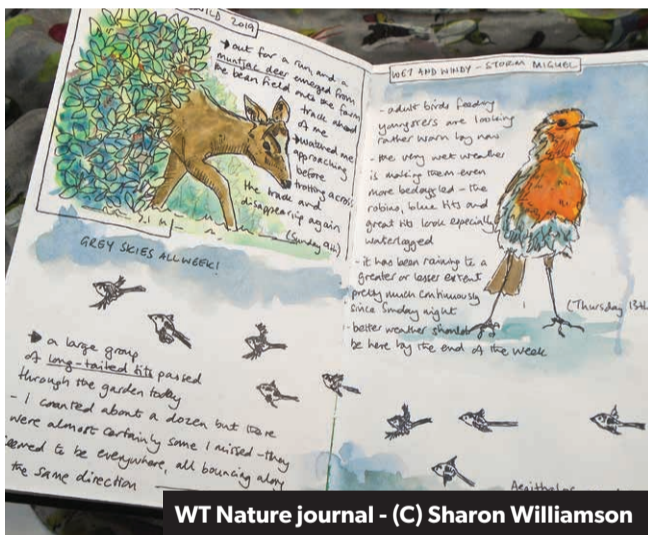 WILD 2019
→ out for a run and a
muntjac deer emerged from
the bean field onto the farm
track ahead
of me
→ watched me
approaching
before
trotting across
the track and
disappearing again
(Sunday 9th)
GREY SKIES ALL WEEK!
→ a large group
of long-tailed tits passed
through the garden today
- I counted about a dozen but there
were almost certainly some I missed - they
seemed to be everywhere, all bouncing along
the same direction
WET AND WINDY - STORM MIGUEL
- adult birds feeding
youngsters are looking
rather worn by now
- the very wet weather
is making them even
more bedraggled - the
robins, blue tits and
great tits look especially
waterlogged
- it has been raining to a
greater or lesser extent
pretty much continuously
since Sunday night
- better weather should
be here by the end of the week
(Thursday 13th
Aegithalos
WT Nature journal - (C) Sharon Williamson